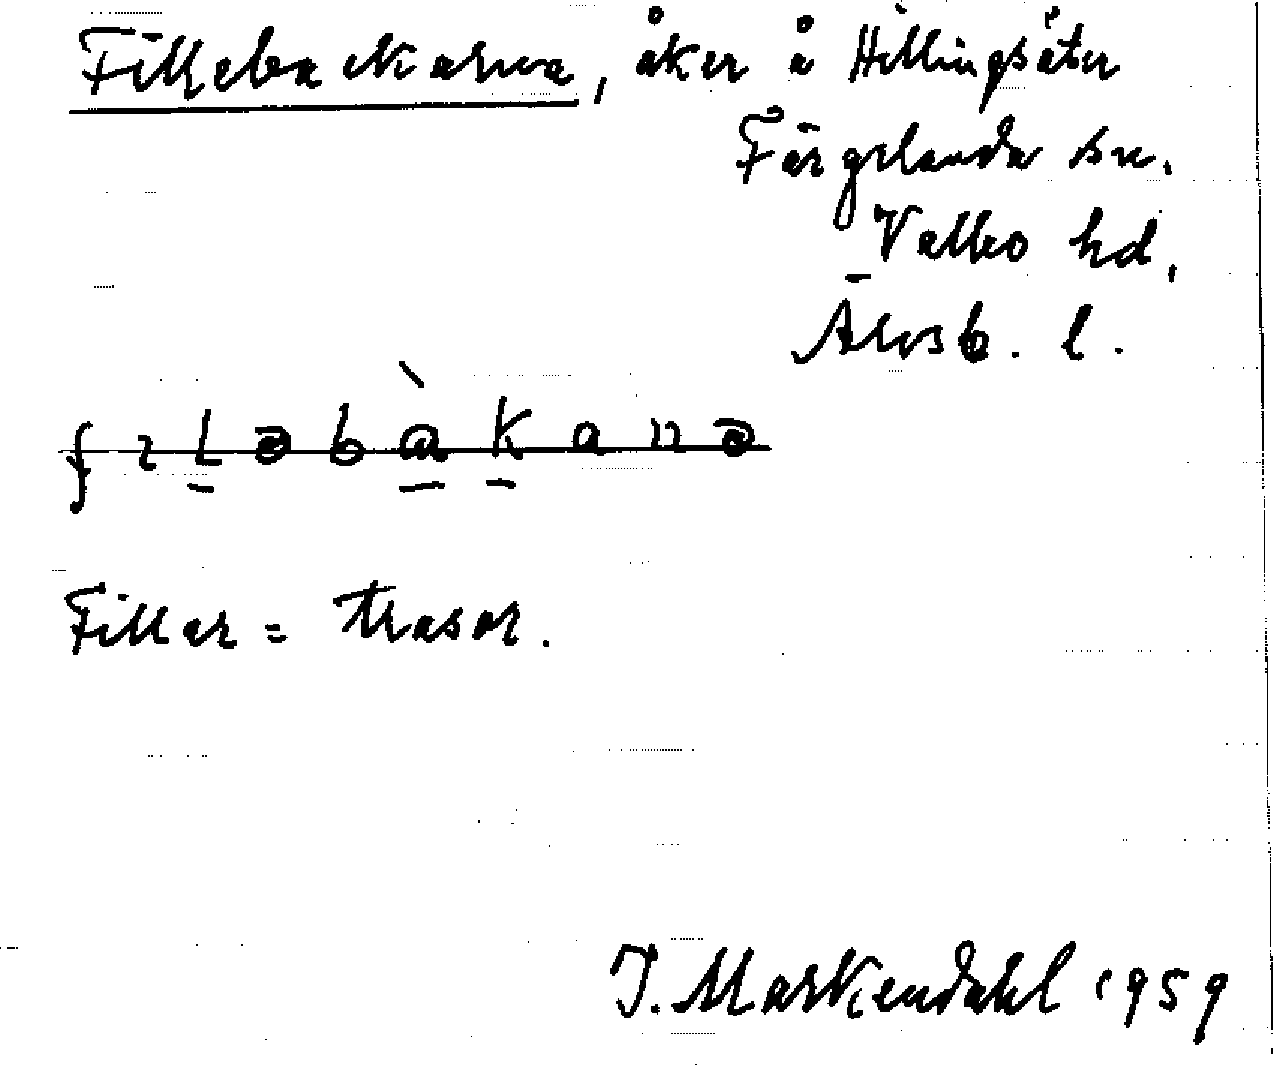 Fillebackarna, åker å Hillingsäter
Färgelanda sn.
Valbo hd,
Älvsb. l.
fıləbàkanə
Fillar = trasor.
J. Markendahl 1959